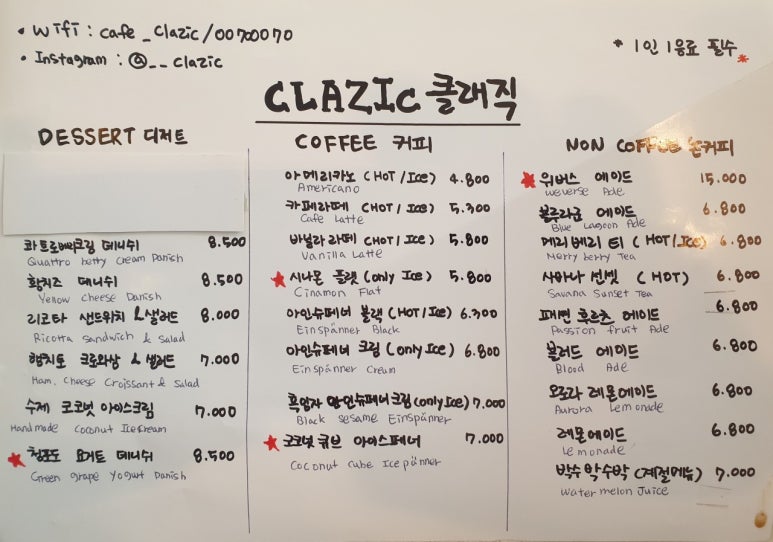 • Wifi : cafe_clazic/00700070
• Instagram : @__clazic
* 1인 1음료 필수 *
CLAZIC 클래직
DESSERT 디저트
콰트로베리크림 데니쉬 8.500
Quattro betty cream Danish
황치즈 데니쉬 8.500
Yellow cheese Danish
리코타 샌드위치 & 샐러드 8.000
Ricotta sandwich & Salad
햄치즈 크로와상 & 샐러드 7.000
Ham, Cheese Croissant & Salad
수제 코코넛 아이스크림 7.000
Handmade Coconut IceCream
청포도 요거트 데니쉬 8.500
Green grape Yogurt Danish
COFFEE 커피
아메리카노 (HOT/Ice) 4.800
Americano
카페라떼 (HOT/Ice) 5.300
Cafe Latte
바닐라 라떼 (HOT/Ice) 5.800
Vanilla Latte
시나몬 플랫 (only Ice) 5.800
Cinamon Flat
아인슈페너 블랙 (HOT/Ice) 6.300
Einspänner Black
아인슈페너 크림 (only Ice) 6.800
Einspänner Cream
흑임자 아인슈페너크림 (only Ice) 7.000
Black sesame Einspänner
코코넛 큐브 아이스페너 7.000
Coconut cube Icepänner
NON COFFEE 논커피
위버스 에이드 15.000
weverse Ade
블루라군 에이드 6.800
Blue Lagoon Ade
메리베리 티 (HOT/Ice) 6.800
Merry berry Tea
사바나 선셋 (HOT) 6.800
Savana Sunset Tea
패션 후르츠 에이드 6.800
Passion fruit Ade
블러드 에이드 6.800
Blood Ade
오로라 레몬에이드 6.800
Aurora Lemonade
레몬에이드 6.800
Lemonade
박수박수박 (계절메뉴) 7.000
Watermelon Juice